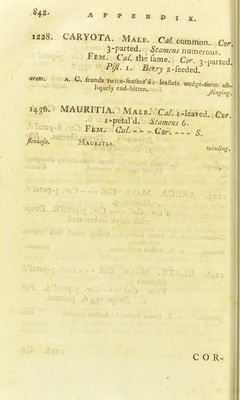 842. APPENDIX.
1228. CARYOTA. MALE. Cal. common. Cor.
3-parted. Stamens numerous.
FEM. Cal. the same. Cor. 3-parted.
Pist. 1. Berry 2-seeded.
urens. A. C. fronds twice-feather'd; leaflets wedge-form ob-
liquely end-bitten. stinging.
1436. MAURITIA. MALE. Cal. 1-leaved. Cor.
1-petal'd. Stamens 6.
FEM. Cal. - - - Cor. - - - S.
flexuosa. MAURITIA. winding.
COR-